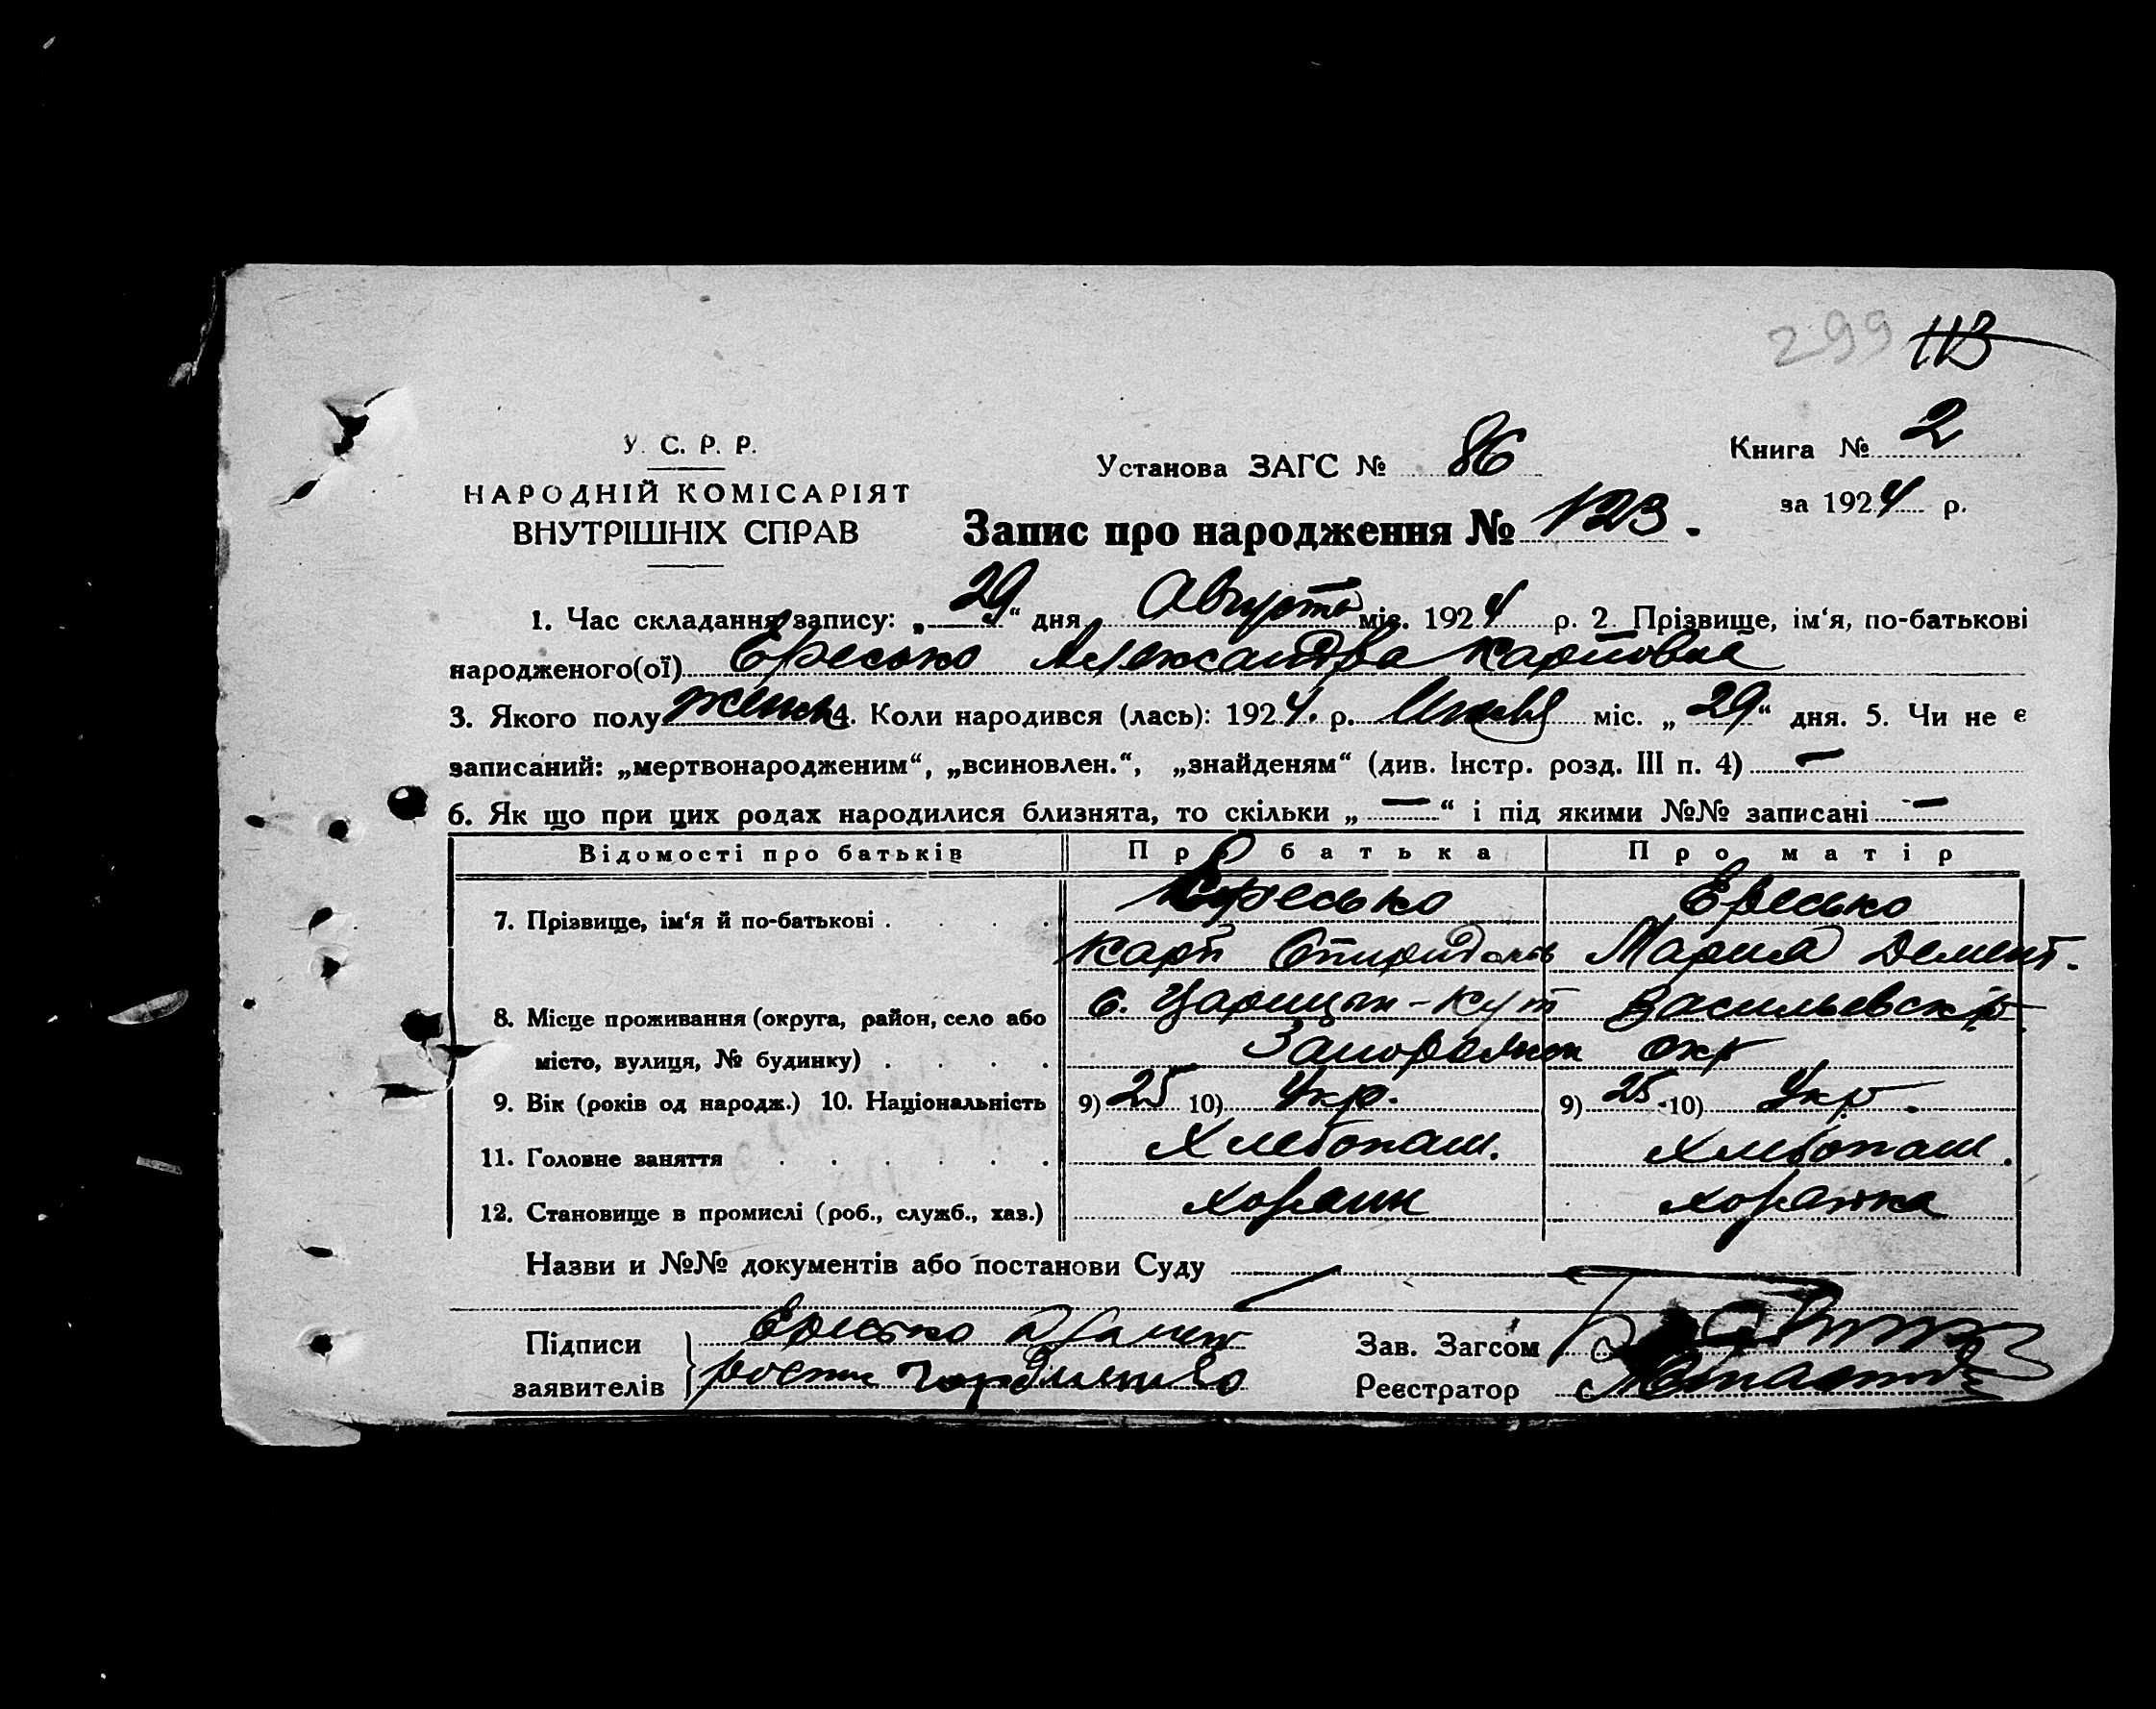 299 113
У. С. Р. Р.
НАРОДНІЙ КОМІСАРІЯТ
ВНУТРІШНІХ СПРАВ
Установа ЗАГС № 86
Книга № 2
за 1924 р.
Запис про народження № 123.
1. Час складання запису: „29“ дня Августа міс. 1924 р. 2. Прізвище, ім‘я, по-батькові
народженого(ої) Ересько Александра Карповна
3. Якого полу женск 4. Коли народився (лась): 1924. р. міс. „29“ дня. 5. Чи не є
записаний: „мертвонародженим“, „всиновлен.“, „знайденям“ (див. Інстр. розд. III п. 4) —
6. Як що при цих родах народилися близнята, то скільки „—“ і під якими №№ записані —
Відомості про батьків Про батька Про матір
7. Прізвище, ім‘я й по-батькові . . . . Ересько Ересько
Карп Спиридонов Мария Демент.
8. Місце проживання (округа, район, село або с. Царицын-Кут Васильевск р
місто, вулиця, № будинку) . . . . Запорожск окр
9. Вік (років од народж.) 10. Національність 9) 25 10) Укр. 9) 25 10) Укр.
11. Головне заняття . . . . . . Хлебопаш. Хлебопаш.
12. Становище в промислі (роб., служб., хаз.) хозяин хозяйка
Назви и №№ документів або постанови Суду
Підписи Ересько
заявителів Гордиенко
Зав. Загсом
Реєстратор